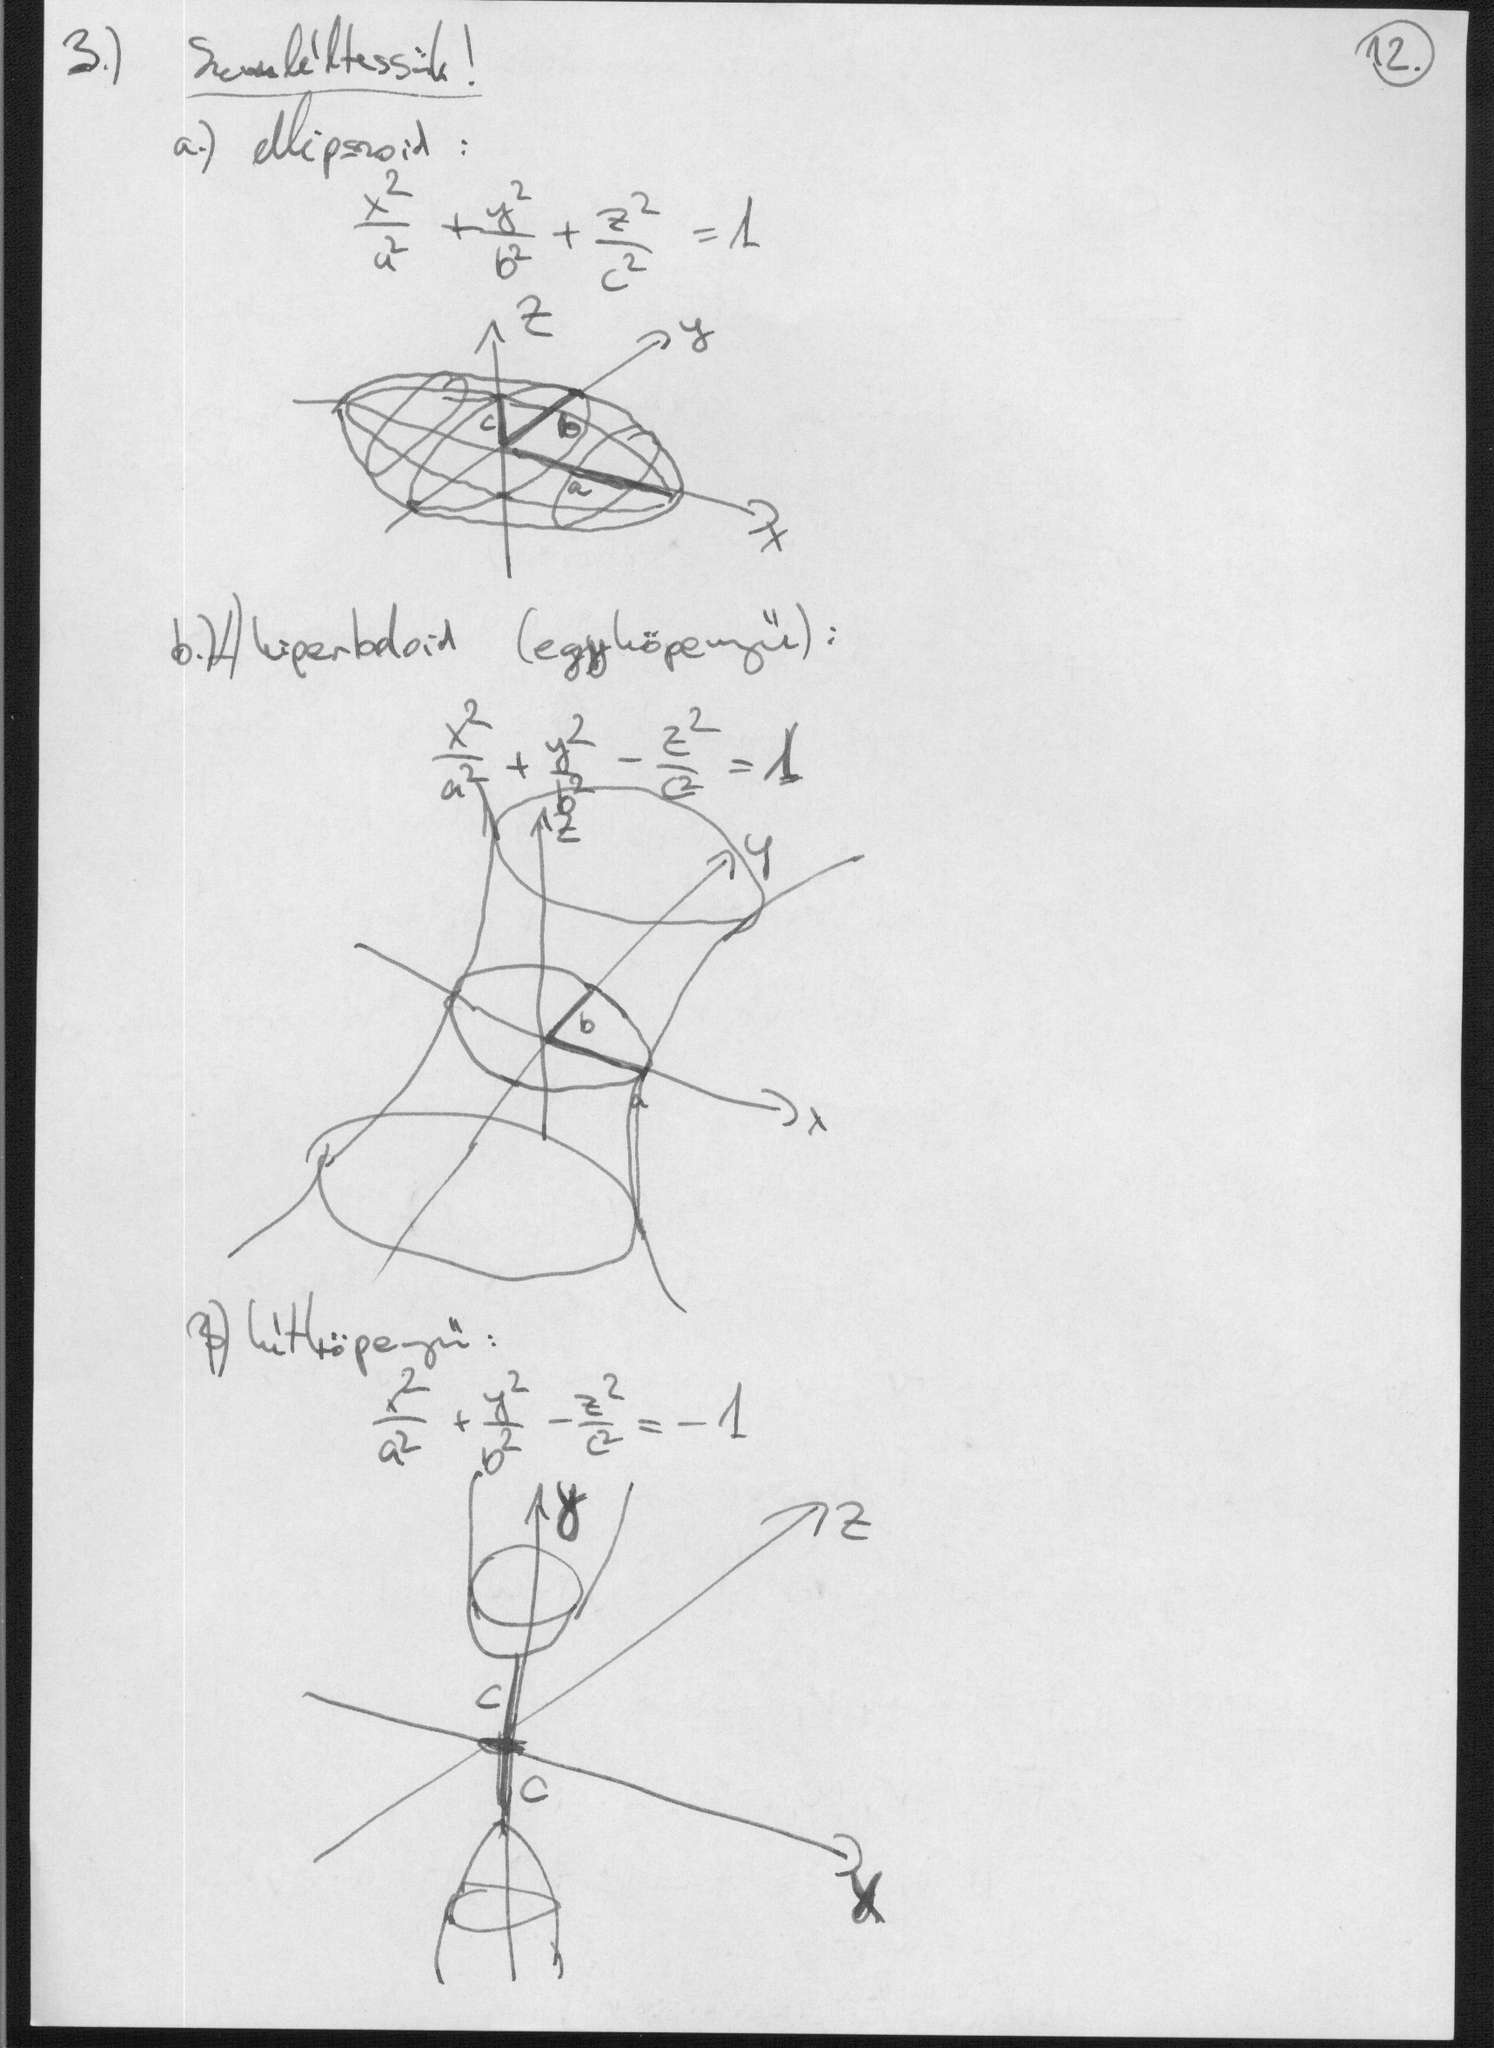 3.) Szemléltessük! 12.
a.) ellipszoid:
x²/a² + y²/b² + z²/c² = 1
z
y
c
b
a
x
b.) 1/ hiperboloid (egyköpenyű):
x²/a² + y²/b² - z²/c² = 1
z
y
b
a
x
2/ kétköpenyű:
x²/a² + y²/b² - z²/c² = -1
y
z
c
c
x